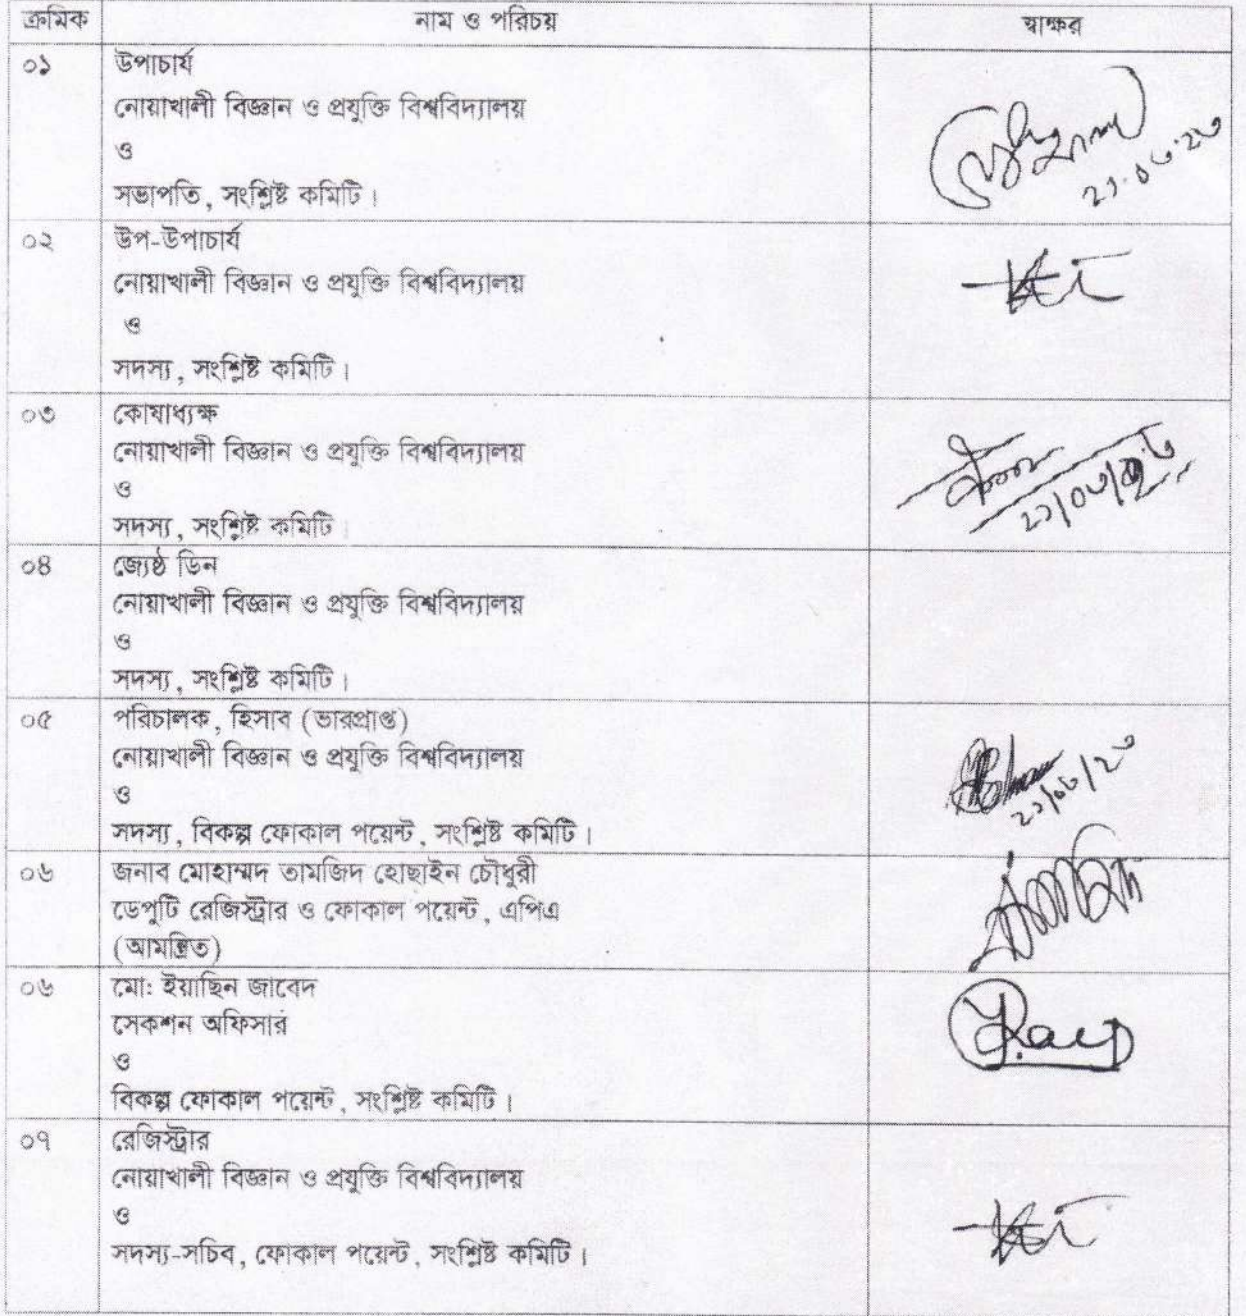 ক্রমিক নাম ও পরিচয় স্বাক্ষর
০১ উপাচার্য
নোয়াখালী বিজ্ঞান ও প্রযুক্তি বিশ্ববিদ্যালয়
ও
সভাপতি, সংশ্লিষ্ট কমিটি।
০২ উপ-উপাচার্য
নোয়াখালী বিজ্ঞান ও প্রযুক্তি বিশ্ববিদ্যালয়
ও
সদস্য, সংশ্লিষ্ট কমিটি।
০৩ কোষাধ্যক্ষ
নোয়াখালী বিজ্ঞান ও প্রযুক্তি বিশ্ববিদ্যালয়
ও
সদস্য, সংশ্লিষ্ট কমিটি।
০৪ জ্যেষ্ঠ ডিন
নোয়াখালী বিজ্ঞান ও প্রযুক্তি বিশ্ববিদ্যালয়
ও
সদস্য, সংশ্লিষ্ট কমিটি।
০৫ পরিচালক, হিসাব (ভারপ্রাপ্ত)
নোয়াখালী বিজ্ঞান ও প্রযুক্তি বিশ্ববিদ্যালয়
ও
সদস্য, বিকল্প ফোকাল পয়েন্ট, সংশ্লিষ্ট কমিটি।
০৬ জনাব মোহাম্মদ তামজিদ হোছাইন চৌধুরী
ডেপুটি রেজিস্ট্রার ও ফোকাল পয়েন্ট, এপিএ
(আমন্ত্রিত)
০৬ মো: ইয়াছিন জাবেদ
সেকশন অফিসার
ও
বিকল্প ফোকাল পয়েন্ট, সংশ্লিষ্ট কমিটি।
০৭ রেজিস্ট্রার
নোয়াখালী বিজ্ঞান ও প্রযুক্তি বিশ্ববিদ্যালয়
ও
সদস্য-সচিব, ফোকাল পয়েন্ট, সংশ্লিষ্ট কমিটি।